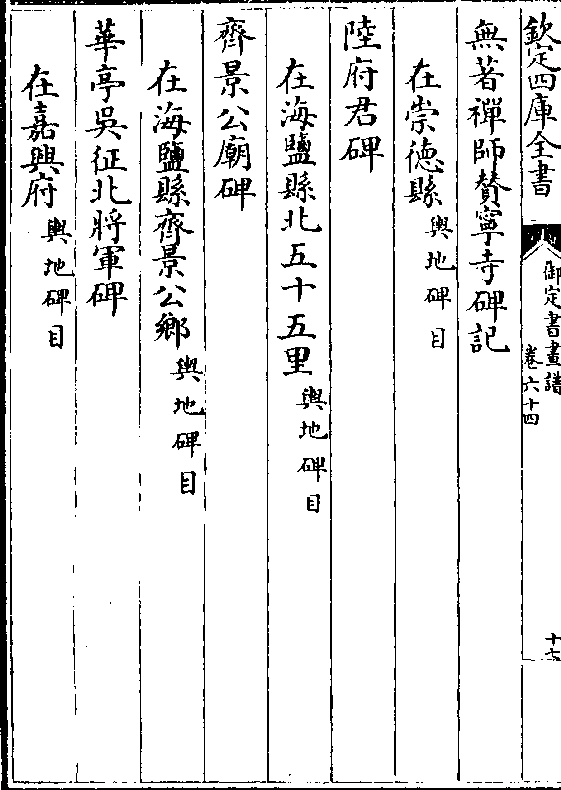 欽定四庫全書
御定書畫譜
卷六十四
十七
無著禪師贊寧寺碑記
在崇德縣輿地碑目
陸府君碑
在海鹽縣北五十五里輿地碑目
齊景公廟碑
在海鹽縣齊景公鄉輿地碑目
華亭吳征北將軍碑
在嘉興府輿地碑目